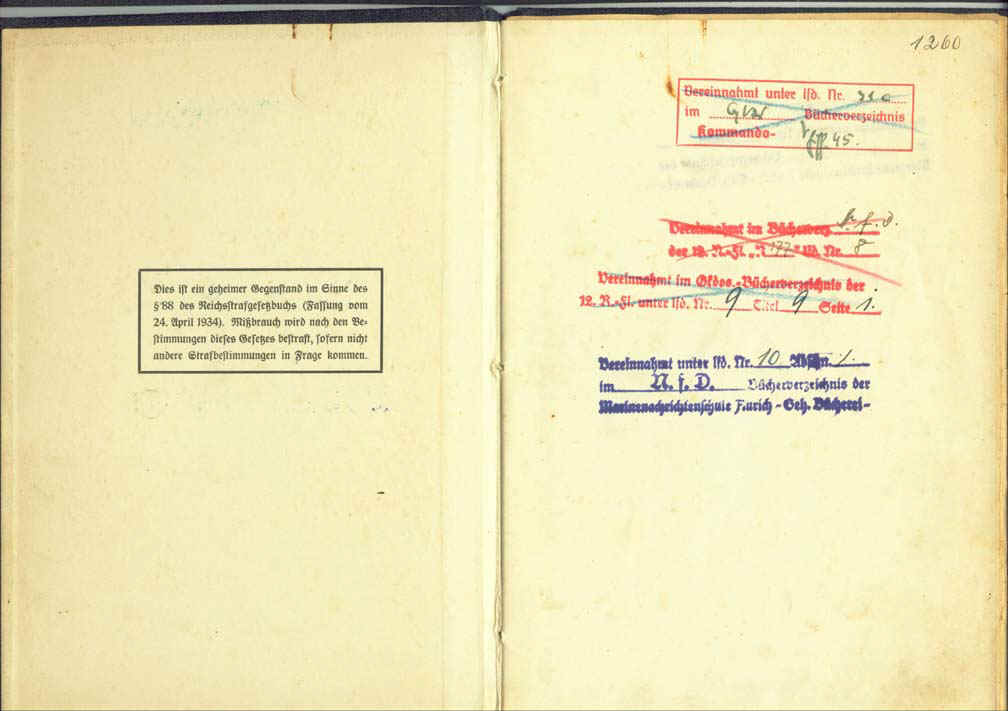 Dies ist ein geheimer Gegenstand im Sinne des
§ 88 des Reichsstrafgesetzbuchs (Fassung vom
24. April 1934). Mißbrauch wird nach den Be-
stimmungen dieses Gesetzes bestraft, sofern nicht
andere Strafbestimmungen in Frage kommen.
1260
Vereinnahmt unter lfd. Nr.
im Bücherverzeichnis
Kommando-
45.
Vereinnahmt im Bücherverz. N. f. D.
der 12. R.-Fl. „R 177" lfd. Nr. 8
Vereinnahmt im Gkdos.-Bücherverzeichnis der
12. R.-Fl. unter lfd. Nr. 9 Titel 9 Seite 1.
Vereinnahmt unter lfd. Nr. 10 Abschn. 1.
im N. f. D. Bücherverzeichnis der
Marinenachrichtenschule Aurich - Geh. Bücherei-